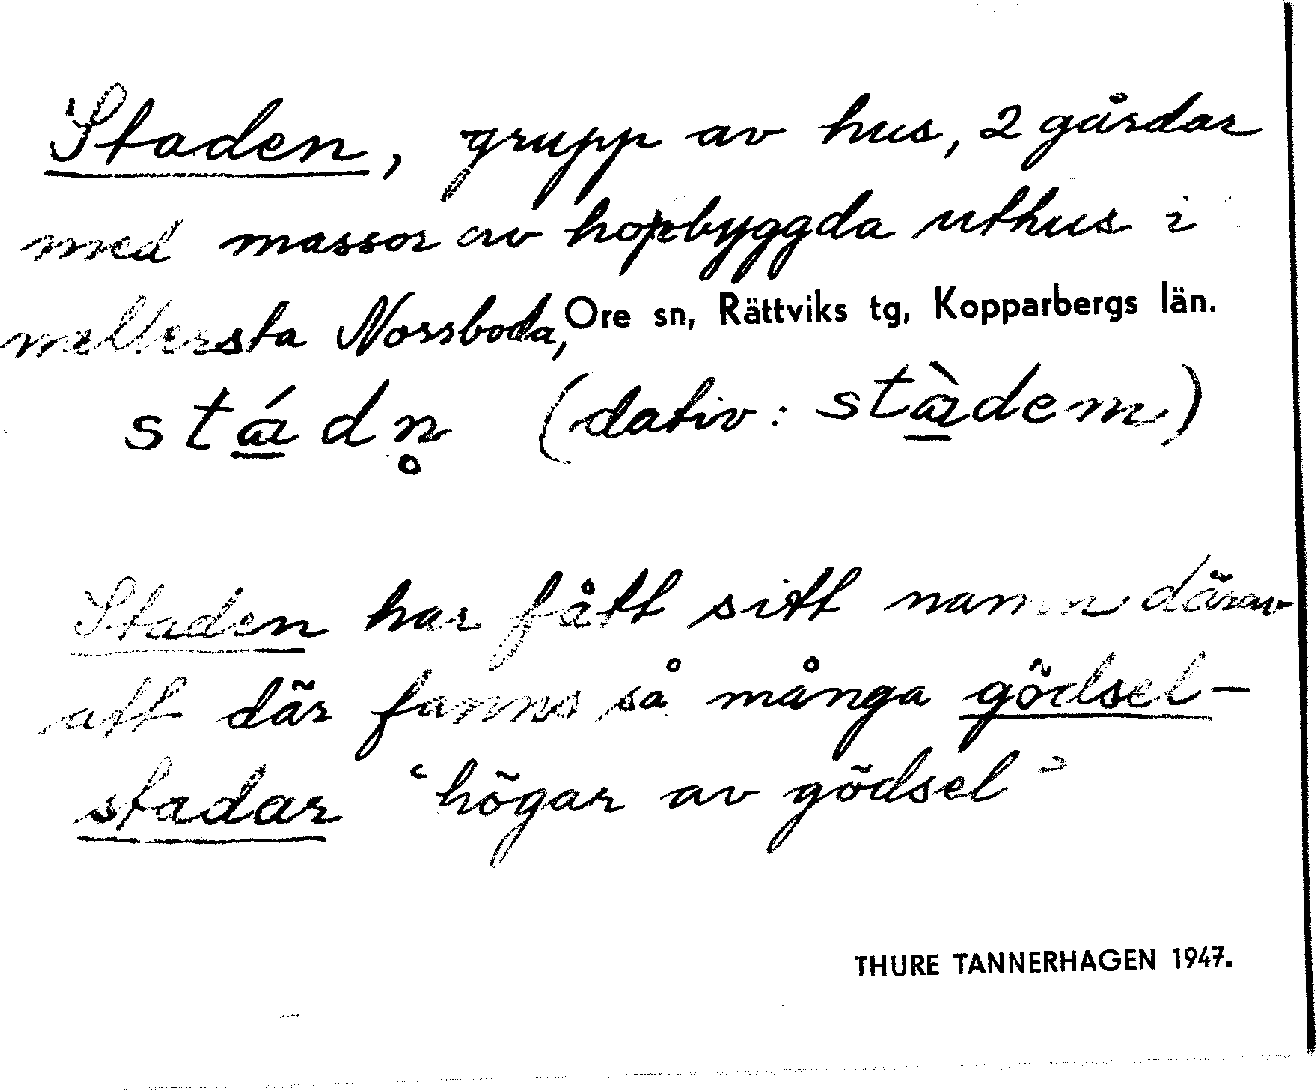 Staden, grupp av hus, 2 gårdar
med massor av hopbyggda uthus i
mellersta Norrboda, Ore sn, Rättviks tg, Kopparbergs län.
stá̱dn̥ (dativ: stà̱dem)
Staden har fått sitt namn därav
att där fanns så många gödsel-
stadar "högar av gödsel"
THURE TANNERHAGEN 1947.